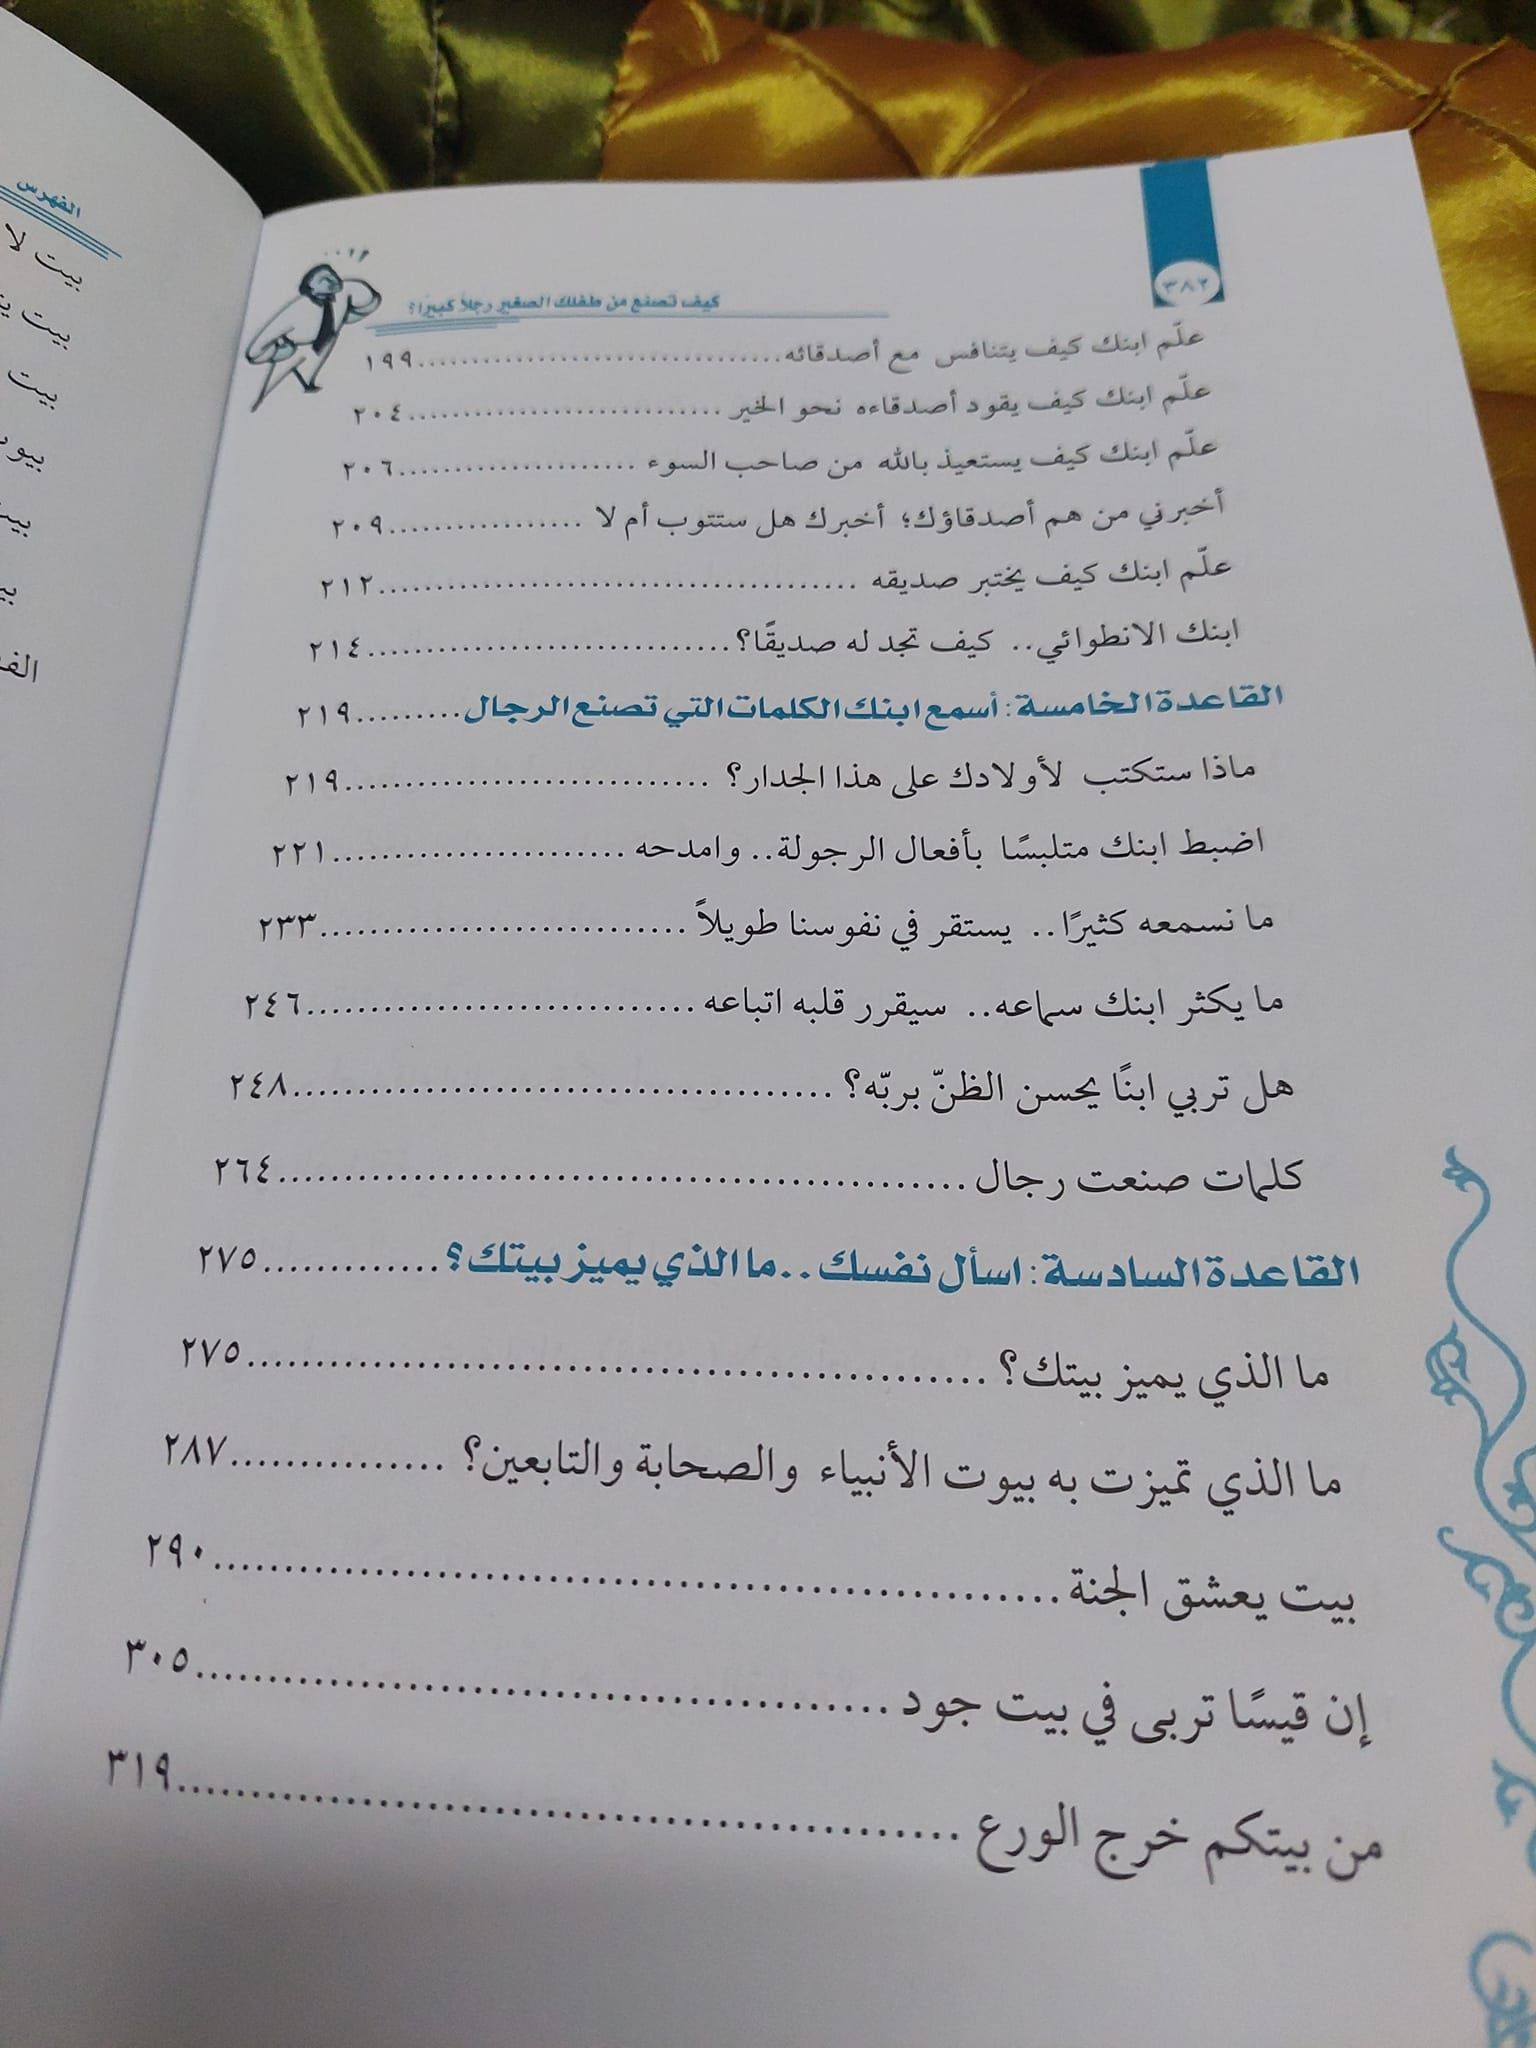 ٣٨٢
كيف تصنع من طفلك الصغير رجلاً كبيرًا؟
علّم ابنك كيف يتنافس مع أصدقائه..................................١٩٩
علّم ابنك كيف يقود أصدقاءه نحو الخير ..............................٢٠٤
علّم ابنك كيف يستعيذ بالله من صاحب السوء .....................٢٠٦
أخبرني من هم أصدقاؤك؛ أخبرك هل ستتوب أم لا .................٢٠٩
علّم ابنك كيف يختبر صديقه ......................................٢١٢
ابنك الانطوائي.. كيف تجد له صديقًا؟..............................٢١٤
القاعدة الخامسة: أسمع ابنك الكلمات التي تصنع الرجال.........٢١٩
ماذا ستكتب لأولادك على هذا الجدار؟ .............................٢١٩
اضبط ابنك متلبسًا بأفعال الرجولة.. وامدحه .......................٢٢١
ما نسمعه كثيرًا.. يستقر في نفوسنا طويلاً ............................٢٣٣
ما يكثر ابنك سماعه.. سيقرر قلبه اتباعه ..............................٢٤٦
هل تربي ابنًا يحسن الظنّ بربّه؟ ......................................٢٤٨
كلمات صنعت رجال ................................................٢٦٤
القاعدة السادسة: اسأل نفسك ..ما الذي يميز بيتك؟.............٢٧٥
ما الذي يميز بيتك؟ ..................................................٢٧٥
ما الذي تميزت به بيوت الأنبياء والصحابة والتابعين؟ ...............٢٨٧
بيت يعشق الجنة ....................................................٢٩٠
إن قيسًا تربى في بيت جود ............................................٣٠٥
من بيتكم خرج الورع ................................................٣١٩
الفهرس
بيت لا
بيت
بيت